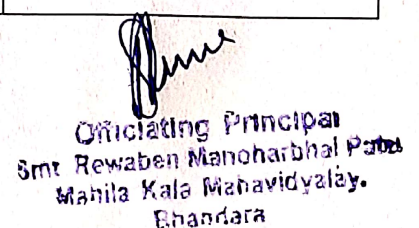 Officiating Principal
Smt Rewaben Manoharbhai Patel
Mahila Kala Mahavidyalay.
Bhandara